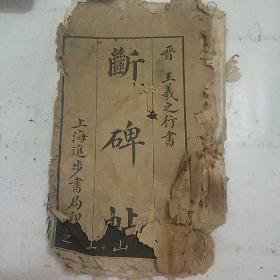 晋王羲之行書
斷碑帖
上海進步書局印